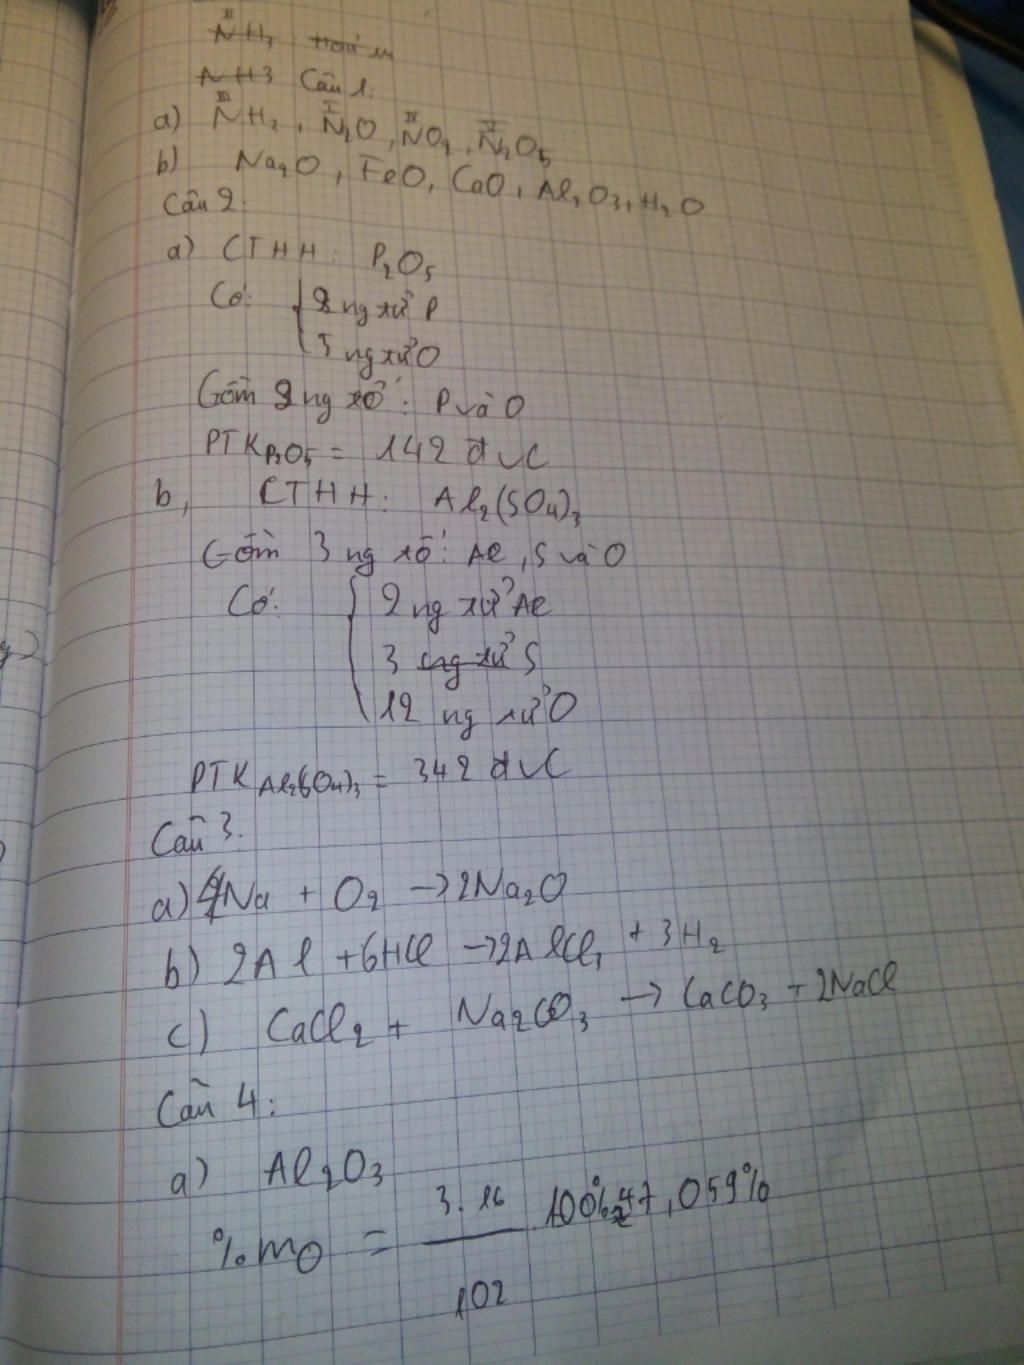 NH3
NH3 Câu 1:
a) NH3, N2O, NO2, N2O5
b) Na2O, FeO, CaO, Al2O3, H2O
Câu 2:
a) CTHH: P2O5
Có: 2 ng tử P
5 ng tử O
Gồm 2 ng tố: P và O
PTK P2O5 = 142 đvC
b, CTHH: Al2(SO4)3
Gồm 3 ng tố: Al, S và O
Có: 2 ng tử Al
3 ng tử S
12 ng tử O
PTK Al2(SO4)3 = 342 đvC
Câu 3:
a) 4Na + O2 → 2Na2O
b) 2Al + 6HCl → 2AlCl3 + 3H2
c) CaCl2 + Na2CO3 → CaCO3 + 2NaCl
Câu 4:
a) Al2O3
%mO = 3.16 / 102 100% 47,059%